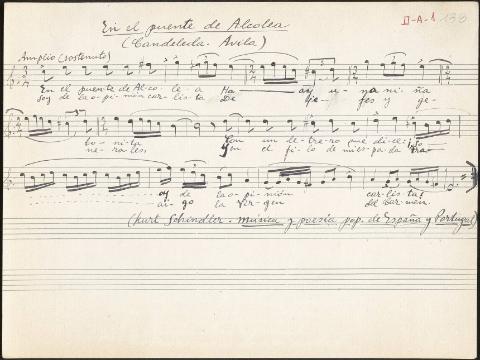 En el puente de Alcolea
II-A-1 130
(Candeleda. Avila)
Amplio (sostenuto)
En el puente de Al-co-le-a Ha ay u-na ni-ña
Soy de la o-pi-nión car-lis-ta De je-fes y ge-
bo-ni-ta Con un le-tre-ro que di-ce:
ne-ra-les Y en el fi-lo de mi es-pa-da
oy de la o-pi-nión car-lis-ta!
ai-go la Vir-gen del Car-men.
(Kurt Schindler. Música y poesía pop. de España y Portugal)